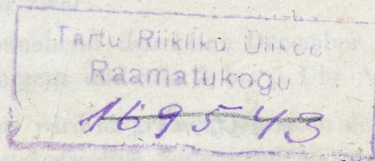 Tartu Riikliku Ülikooli
Raamatukogu
169543